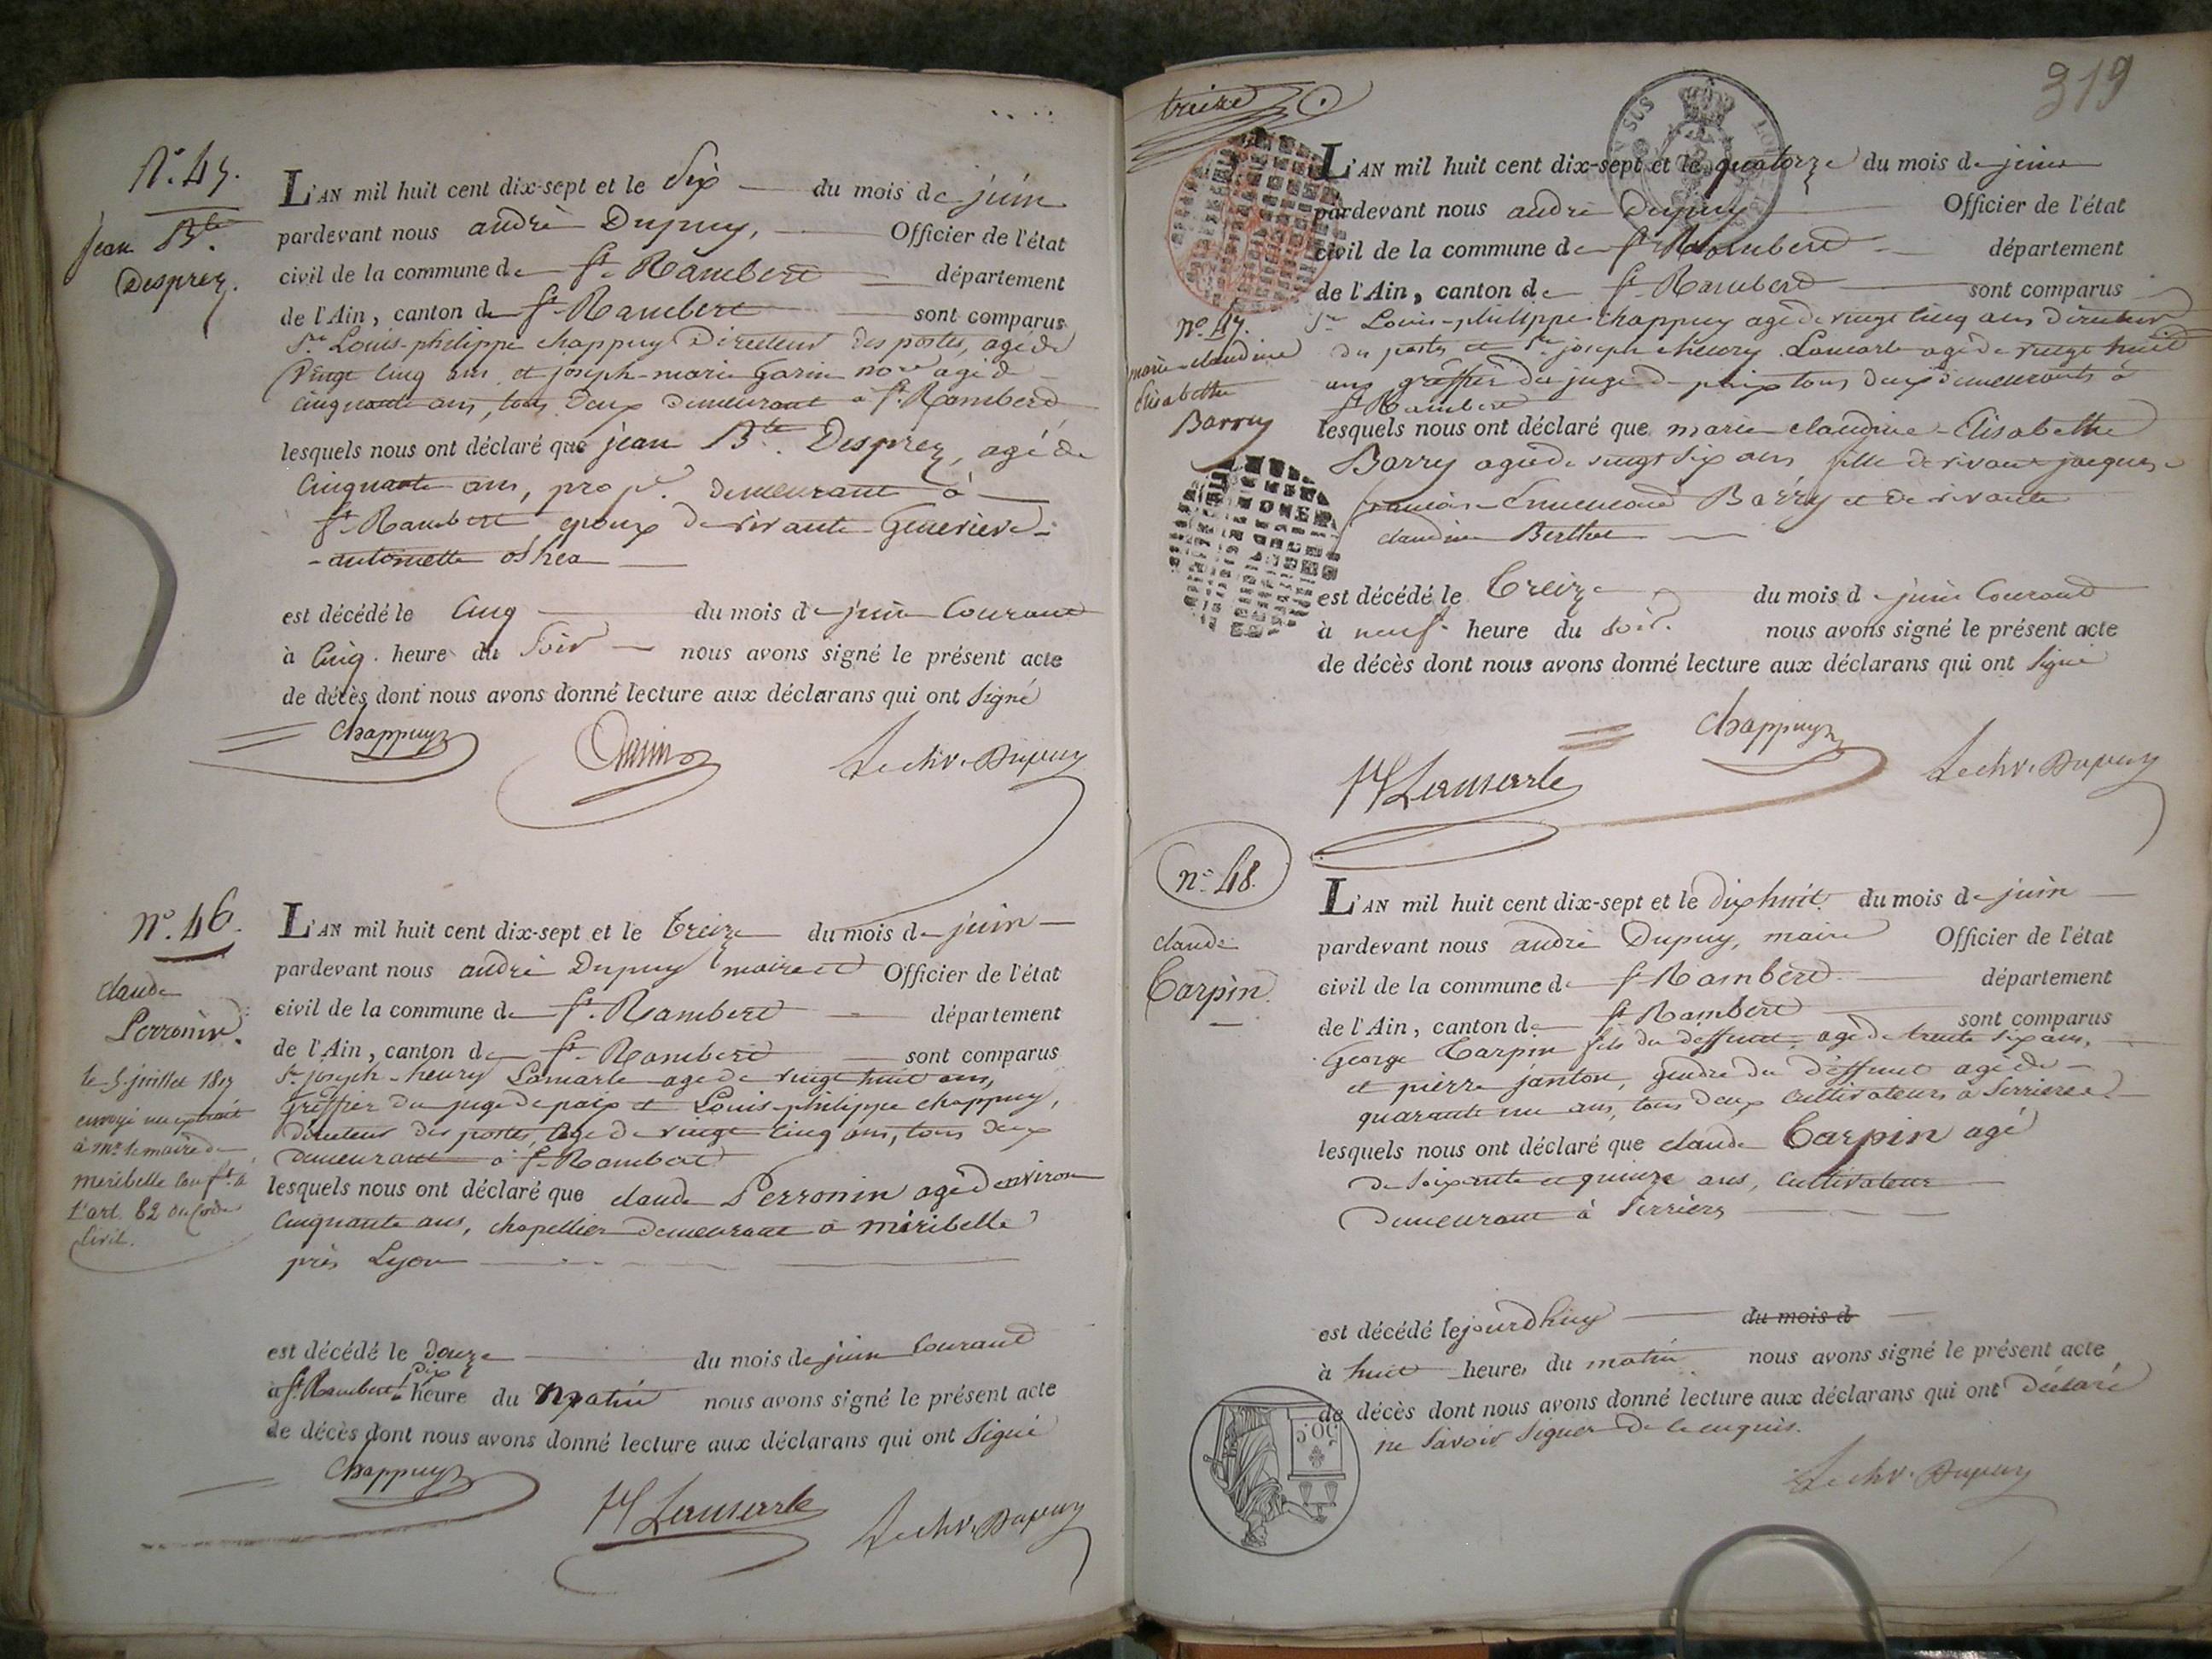 N.° 45.
Jean B.te
Desprez.
L'AN mil huit cent dix-sept et le Six du mois de juin
pardevant nous andré Dupuy, Officier de l'état
civil de la commune de St. Rambert département
de l'Ain, canton de St. Rambert sont comparus
Sr. Louis-philippe chappuy Directeur des postes, agé de
vingt cinq ans et joseph-marie Garin nore agé de
cinquante ans, tous deux demeurant à St. Rambert
lesquels nous ont déclaré que jean B.te Desprez, agé de
Cinquante ans, prop.re demeurant à
St. Rambert epoux de vivante Genevieve-
-antoinette oshea
est décédé le Cinq du mois de juin Courant
à Cinq heure du Soir nous avons signé le présent acte
de décès dont nous avons donné lecture aux déclarans qui ont Signé
Chappuy Garin Le chv. Dupuy
N.° 46.
claude
Perronin.
le 5 juillet 1817
envoyé un extrait
à mr. le maire de
meribelle conft. à
l'art. 82 du Code
Civil.
L'AN mil huit cent dix-sept et le treize du mois de juin
pardevant nous andré Dupuy maire et Officier de l'état
civil de la commune de St. Rambert département
de l'Ain, canton de St. Rambert sont comparus
Sr. joseph-henry Lamarle agé de vingt huit ans,
Greffier du juge de paix et Louis-philippe chappuy,
directeur des postes, agé de vingt cinq ans, tous deux
demeurant à St. Rambert
lesquels nous ont déclaré que claude Perronin agé d'environ
Cinquante ans, chapellier demeurant à miribelle
près Lyon
est décédé le douze du mois de juin Courant
à St. Rambert à dix heure du matin nous avons signé le présent acte
de décès dont nous avons donné lecture aux déclarans qui ont Signé
Chappuy H Lamarle Le chv. Dupuy
319
treize
N.° 47.
marie-claudine
Elisabethe
Barry
L'AN mil huit cent dix-sept et le quatorze du mois de juin
pardevant nous andré Dupuy Officier de l'état
civil de la commune de St. Rambert département
de l'Ain, canton de St. Rambert sont comparus
Sr. Louis-philippe chappuy agé de vingt cinq ans directeur
des postes et Sr. joseph henry Lamarle agé de vingt huit
ans greffier du juge de paix tous deux demeurants à
St. Rambert
lesquels nous ont déclaré que marie claudine-Elisabethe
Barry agée de vingt six ans fille de vivant jacques
francois-Ennemond Barry et de vivante
claudine Berthet
est décédé le treize du mois de juin Courant
à neuf heure du soir. nous avons signé le présent acte
de décès dont nous avons donné lecture aux déclarans qui ont Signé
H Lamarle Chappuy Le chv. Dupuy
n.° 48.
claude
Carpin.
L'AN mil huit cent dix-sept et le dix huit du mois de juin
pardevant nous andré Dupuy, maire Officier de l'état
civil de la commune de St. Rambert département
de l'Ain, canton de St. Rambert sont comparus
George Carpin fils du deffunt, agé de trente six ans,
et pierre janton, gendre du deffunt agé de
quarante un ans, tous deux cultivateurs à Serrieres
lesquels nous ont déclaré que claude Carpin agé
de Soixante et quinze ans, cultivateur
demeurant à Serrieres
est décédé le jourd'huy du mois d
à huit heures du matin nous avons signé le présent acte
de décès dont nous avons donné lecture aux déclarans qui ont déclaré
ne Savoir Signer de ce enquis.
Le chv. Dupuy